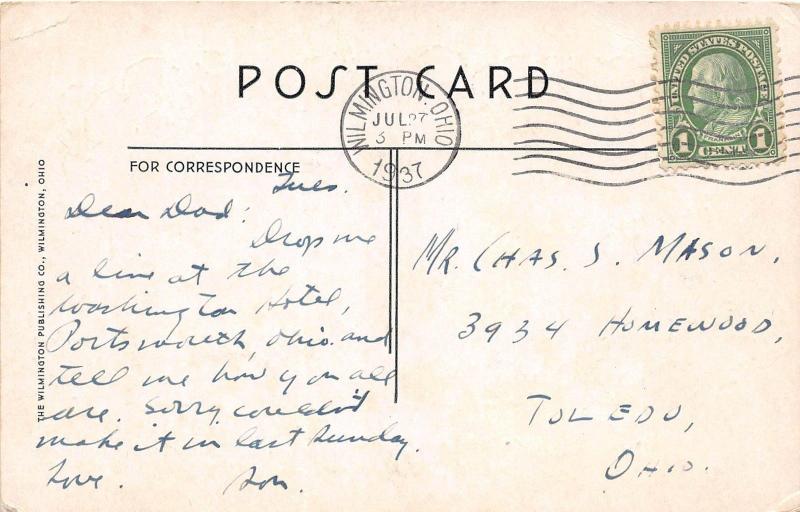 POST CARD
WILMINGTON, OHIO
JUL 27
3 PM
1937
UNITED STATES POSTAGE
FRANKLIN
1 CENT 1
FOR CORRESPONDENCE
THE WILMINGTON PUBLISHING CO., WILMINGTON, OHIO
Tues.
Dear Dad:
Drop me
a line at the
Washington Hotel,
Portsmouth, Ohio. and
tell me how you all
are. Sorry couldn't
make it in last Sunday.
Love. Son.
MR. CHAS. S. MASON,
3934 HOMEWOOD,
TOLEDO,
OHIO.